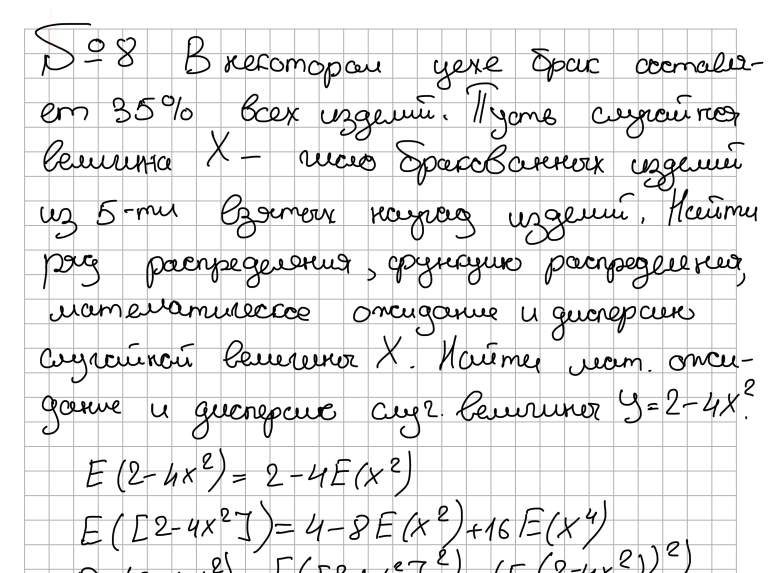 №8 В некотором цехе брак составля-
ет 35% всех изделий. Пусть случайная
величина X – число бракованных изделий
из 5-ти взятых наугад изделий. Найти
ряд распределения, функцию распределения,
математическое ожидание и дисперсию
случайной величины X. Найти мат. ожи-
дание и дисперсию случ. величины y=2-4x².
E(2-4x²)= 2-4E(x²)
E([2-4x²])=4-8E(x²)+16E(x⁴)